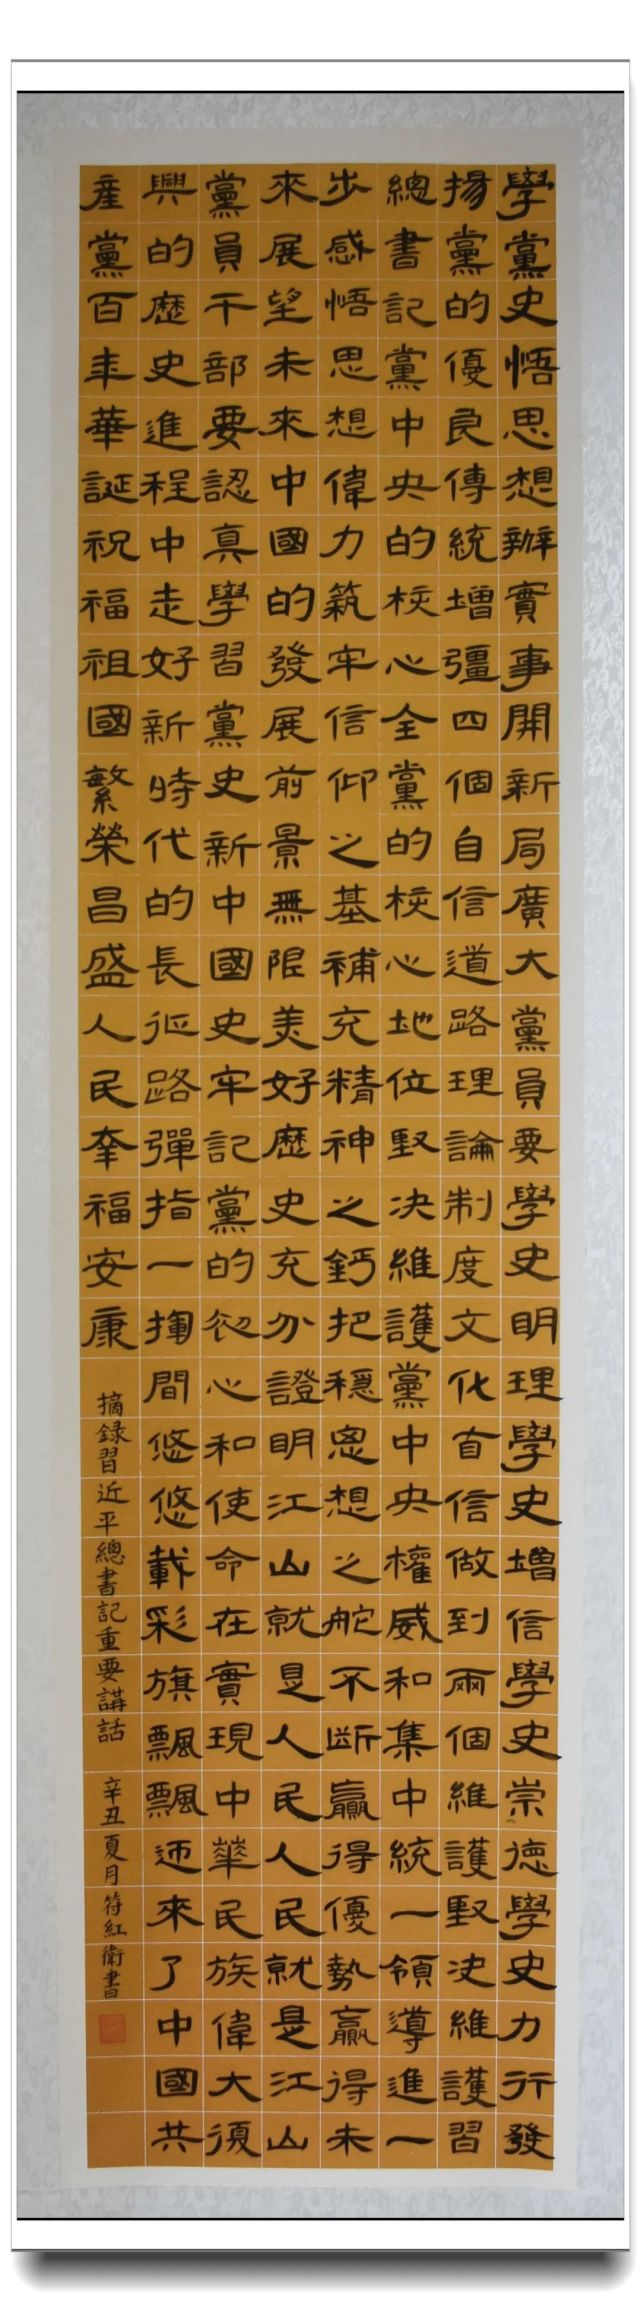 學黨史悟思想辦實事開新局廣大黨員要學史明理學史增信學史崇德學史力行發
揚黨的優良傳統增彊四個自信道路理論制度文化自信做到兩個維護堅決維護習
總書記黨中央的核心全黨的核心地位堅決維護黨中央權威和集中統一領導進一
步感悟思想偉力筑牢信仰之基補充精神之鈣把穩思想之舵不斷贏得優勢贏得未
來展望未來中國的發展前景無限美好歷史充分證明江山就是人民人民就是江山
黨員干部要認真學習黨史新中國史牢記黨的初心和使命在實現中華民族偉大復
興的歷史進程中走好新時代的長征路彈指一揮間悠悠載彩旗飄飄迎來了中國共
產黨百年華誕祝福祖國繁榮昌盛人民幸福安康
摘録習近平總書記重要講話
辛丑夏月符紅衛書